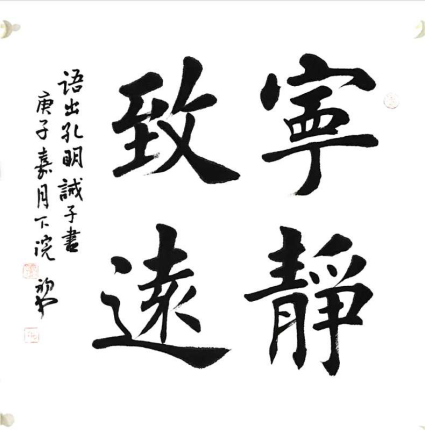 寧靜
致遠
语出孔明誡子書
庚子嘉月下浣